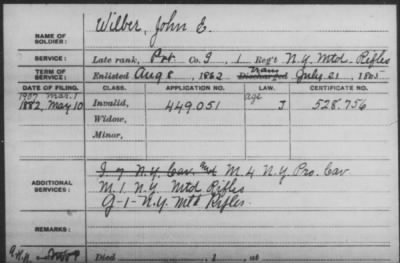 NAME OF SOLDIER: Wilber, John E.
SERVICE: Late rank, Pvt Co. G, 1 Reg't N.Y. Mtd. Rifles
TERM OF SERVICE: Enlisted Aug 8, 1862 Trans Discharged July 21, 1865
DATE OF FILING. CLASS. APPLICATION NO. LAW. CERTIFICATE NO.
1907 Mar. 1 age
1882, May 10 Invalid, 449.051 J 528.756
Widow,
Minor,
ADDITIONAL SERVICES: I. 7 N.Y. Cav. and M. 4 N.Y. Pro. Cav
M. 1. N.Y. Mtd Rifles
G-1-N.Y. Mtd Rifles.
REMARKS:
Died , 1 , at